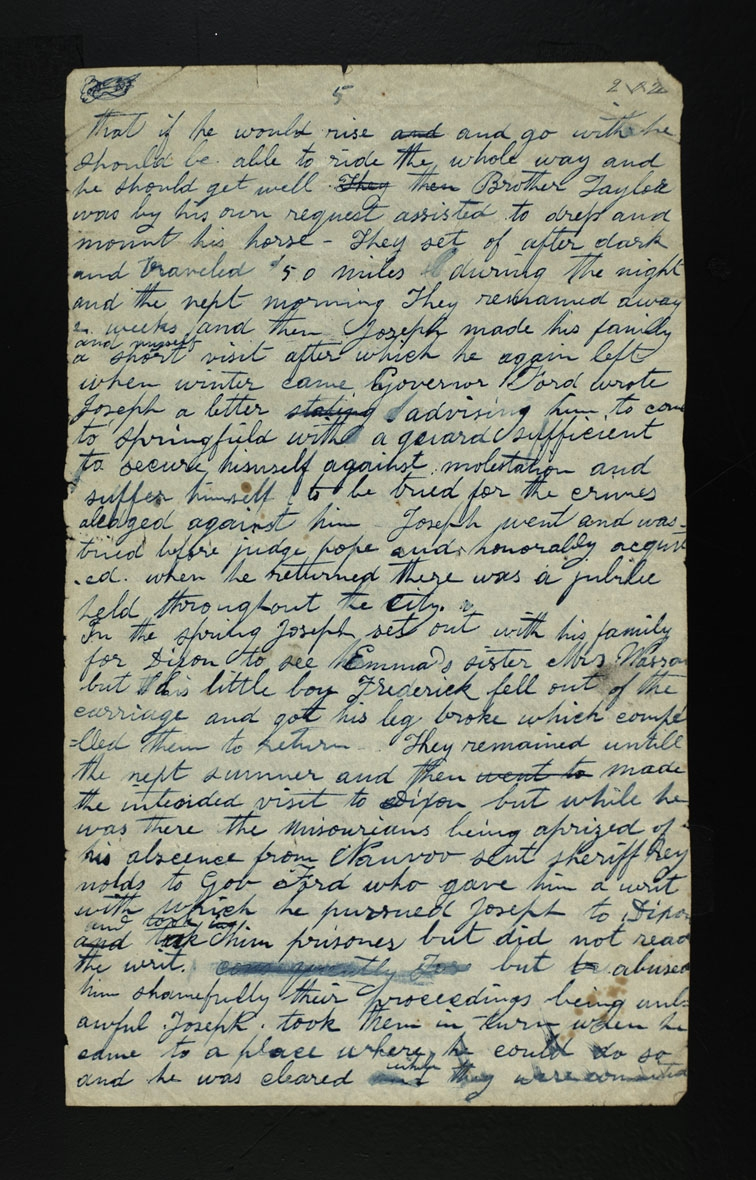 5
that if he would rise and and go with he
should be able to ride the whole way and
he should get well They then Brother Taylor
was by his own request assisted to dress and
mount his horse - They set of after dark
and traveled 50 miles during the night
and the next morning They remained away
2 weeks and then Joseph made his family
and myself
a short visit after which he again left
when winter came Governor Ford wrote
Joseph a letter stating advising him to come
to springfield with a guard sufficient
to secure himself against molestation and
suffer himself to be tried for the crimes
aledged against him Joseph went and was
tried before judge pope and honorably acquit
-ed. when he returned there was a jubilee
held throughout the City.
In the spring Joseph set out with his family
for Dixon to see Emma's sister Mrs Wasson
but his little boy Frederick fell out of the
carriage and got his leg broke which compe
=lled them to return They remained untill
the next summer and then went to made
the intended visit to Dixon but while he
was there the Missourians being aprized of
his abscence from Nauvoo sent sheriff Rey
nolds to Gov Ford who gave him a writ
with which he pursued Joseph to Dixon
and took
and him prisoner but did not read
the writ. but abused
him shamefully their proceedings being unl=
awful Joseph took them in turn when he
came to a place where he could do so
and he was cleared when they were